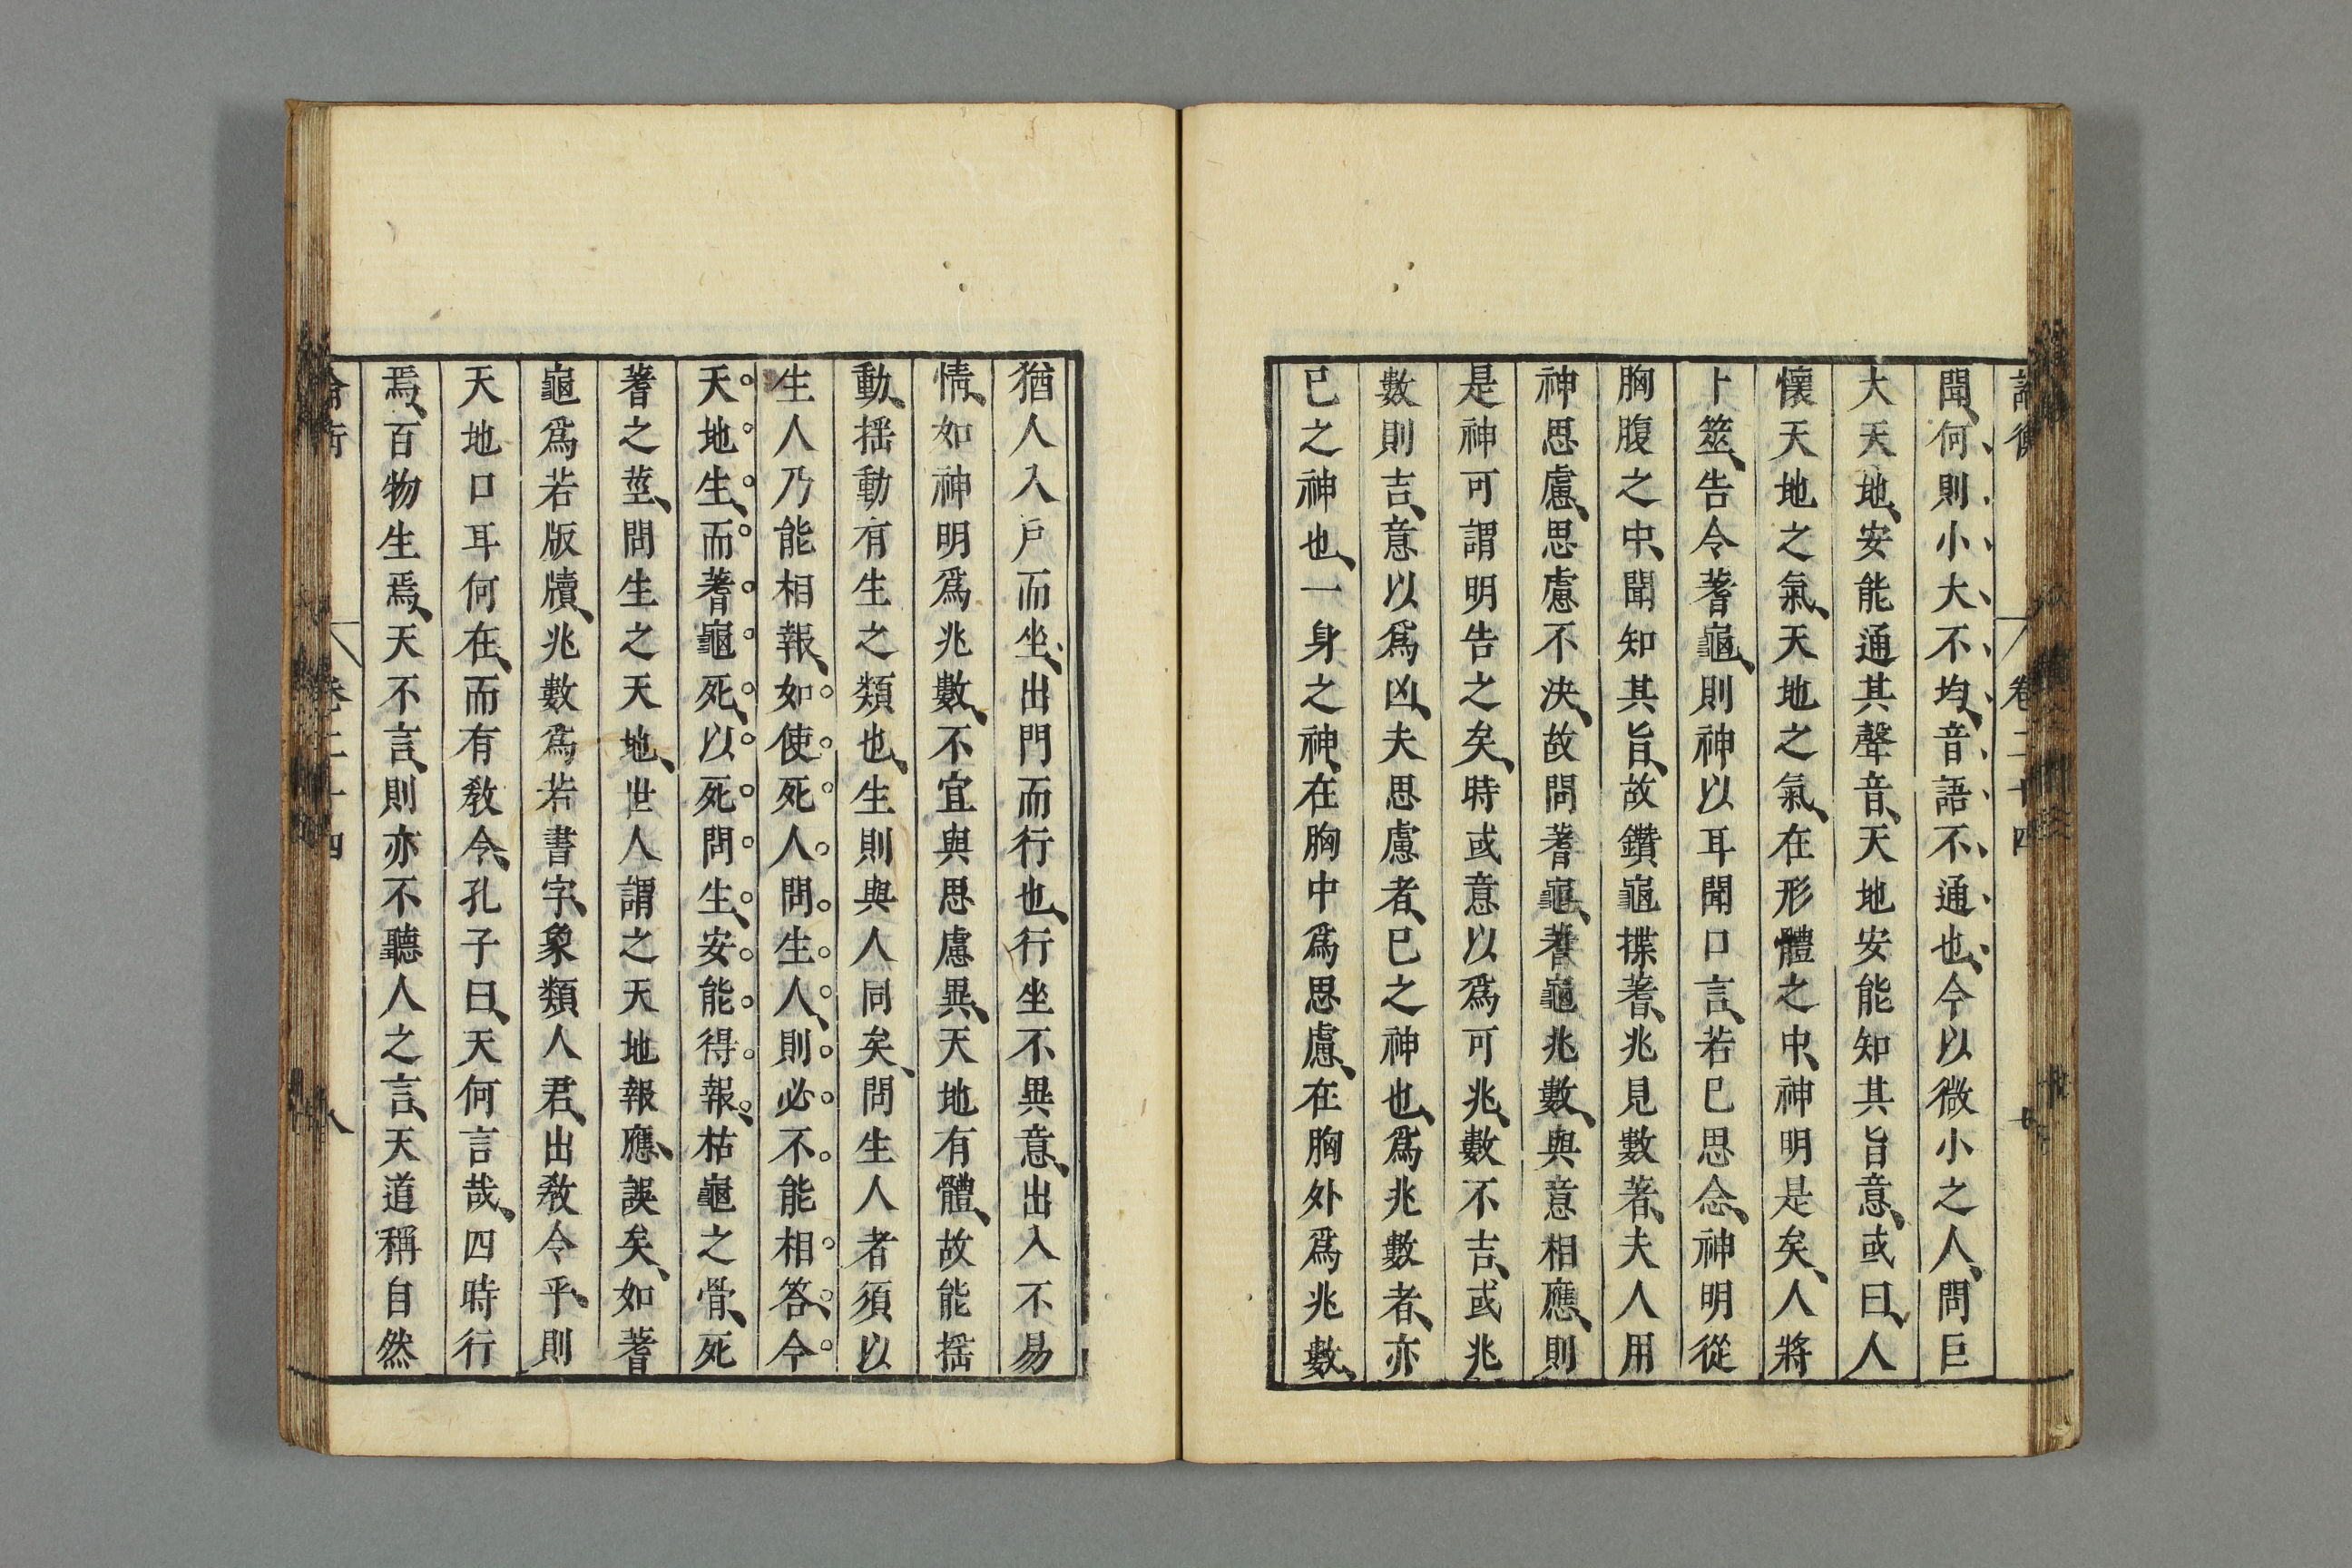 論衡 卷二十四 七
聞、何則小大不均、音語不通也、今以微小之人、問巨
大天地、安能通其聲音、天地安能知其旨意、或曰、人
懷天地之氣、天地之氣、在形體之中、神明是矣、人將
卜筮、告令蓍龜、則神以耳聞口言、若已思念、神明從
胸腹之中、聞知其旨、故鑽龜揲蓍、兆見數著、夫人用
神思慮、思慮不決、故問蓍龜、蓍龜兆數、與意相應、則
是神可謂明告之矣、時或意以爲可、兆數不吉、或兆
數則吉、意以爲凶、夫思慮者、已之神也、爲兆數者、亦
已之神也、一身之神、在胸中爲思慮、在胸外爲兆數、
猶人入戶而坐、出門而行也、行坐不異意、出入不易
情、如神明爲兆數、不宜與思慮異、天地有體、故能搖
動、搖動有生之類也、生則與人同矣、問生人者須以
生人乃能相報、如使死人問生人、則必不能相答、今
天地生、而蓍龜死、以死問生、安能得報、枯龜之骨、死
蓍之莖、問生之天地、世人謂之天地報應、誤矣、如蓍
龜爲若版牘、兆數爲若書字、象類人君、出敎令乎、則
天地口耳何在、而有敎令、孔子曰、天何言哉、四時行
焉、百物生焉、天不言、則亦不聽人之言、天道稱自然
論衡 卷二十四 八